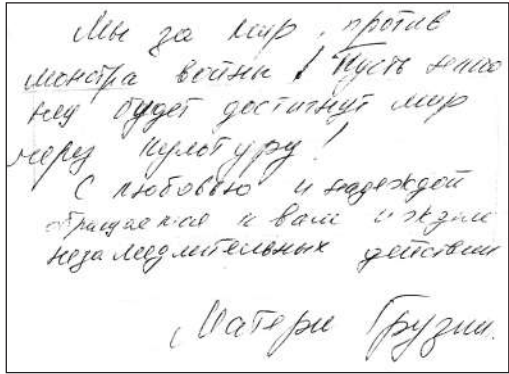 Мы за мир, против
монстра войны! Пусть
будет достигнут мир
через культуру!
С любовью и надеждой
обращаемся к вам и ждём
незамедлительных действий
Матери Грузии.